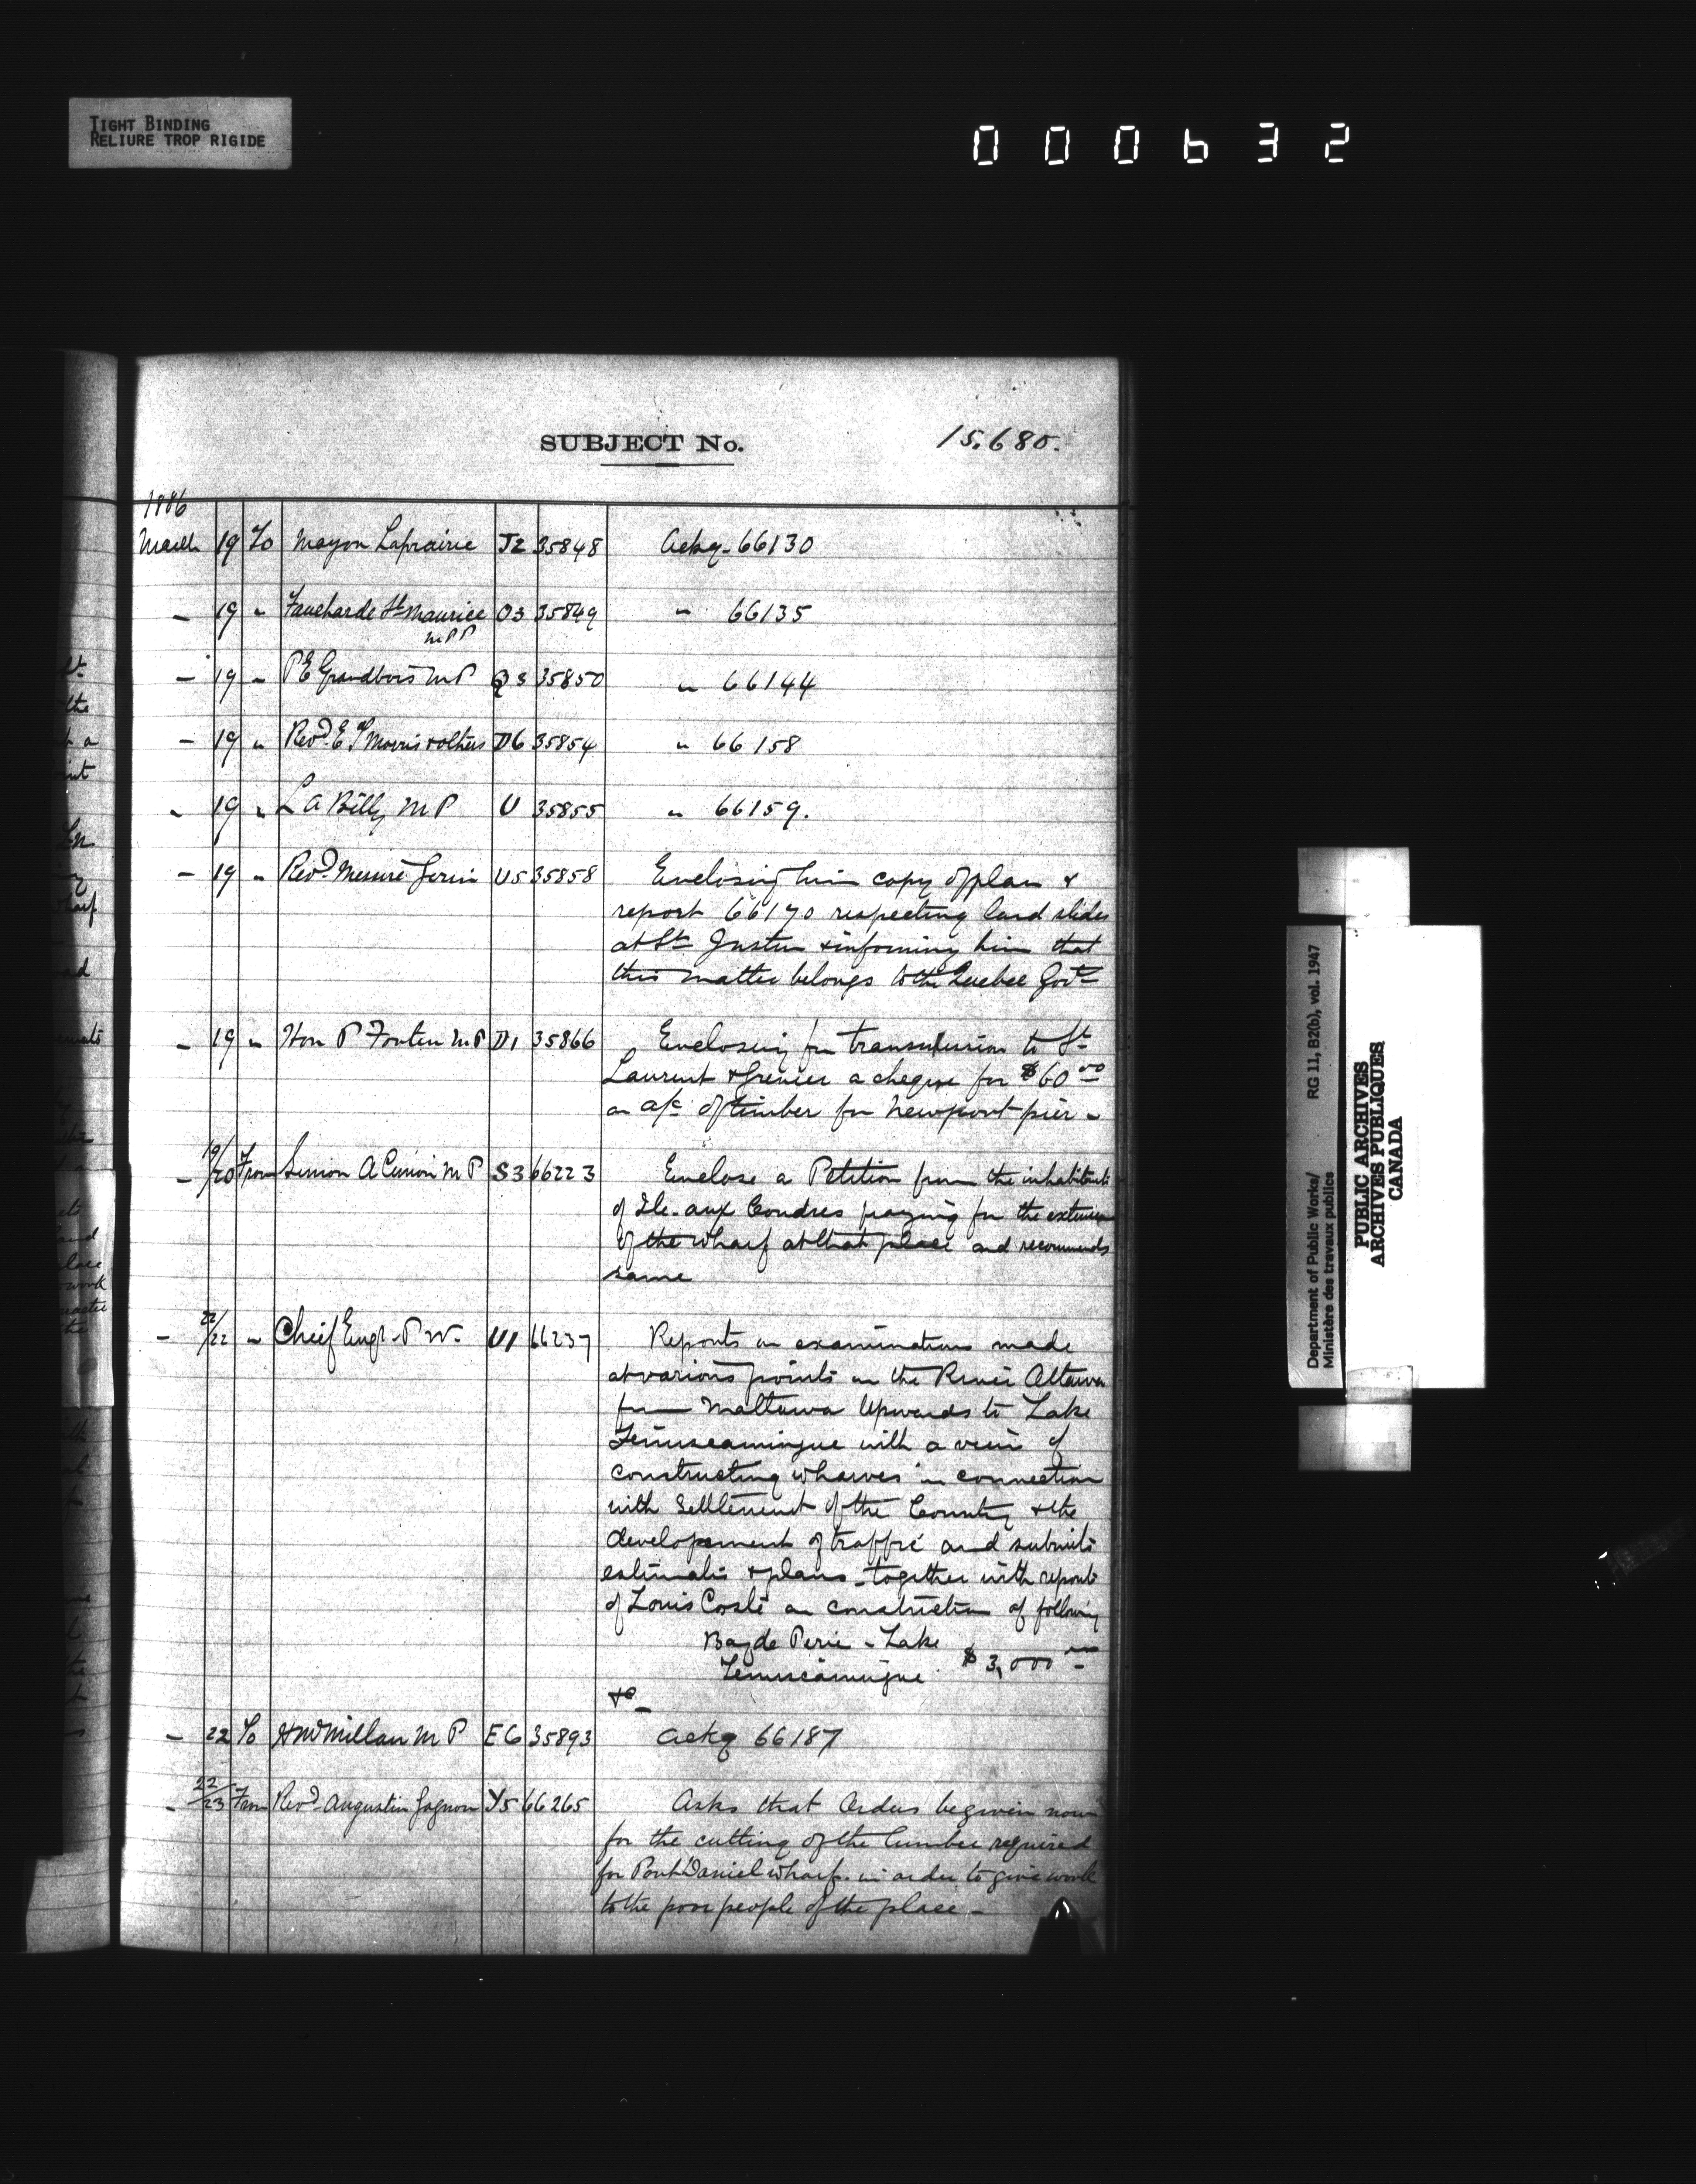 TIGHT BINDING
RELIURE TROP RIGIDE
000632
SUBJECT No. 15.680.
1886
March 19 To Mayor Laprairie J2 35848 Ackg. 66130
— 19 " Faucharde St Maurice O3 35849 " 66135
MPP
— 19 " P E Grandbois MP Q3 35850 " 66144
— 19 " Revd. E P Morris & others D6 35854 " 66158
" 19 " L A Billy MP U 35855 " 66159.
— 19 " Revd. Messire Gerin U5 35858 Enclosing him copy of plan &
report 66170 respecting land slides
at St Justin & informing him that
this matter belongs to the Quebec Govt
— 19 " Hon P Fortin MP D1 35866 Enclosing for transmission to St
Laurent & Grenier a cheque for $60 00
on a/c of timber for Newport pier —
— 19/20 From Simon A Cimon MP S3 66223 Enclose a Petition from the inhabitants
of Ile aux Coudres praying for the extension
of the wharf at that place and recommends
same
— 22/22 " Chief Engr. P W. U1 66237 Reports on examinations made
at various points on the River Ottawa
from Mattawa Upwards to Lake
Temiscamingue with a view of
constructing wharves in connection
with Settlement of the Country & the
developement of traffic and submits
estimates & plans — together with reports
of Louis Costé on construction of following
Bay de Pere — Lake
Temiscamingue. $3,000 00
&c —
— 22 To H McMillan MP E6 35893 Ackg 66187
— 22/23 From Revd. Augustin Gagnon Y5 66265 Asks that Orders be given now
for the cutting of the lumber required
for Port Daniel wharf in order to give work
to the poor people of the place —
Department of Public Works/ RG 11, B2(b), vol. 1947
Ministère des travaux publics
PUBLIC ARCHIVES
ARCHIVES PUBLIQUES
CANADA